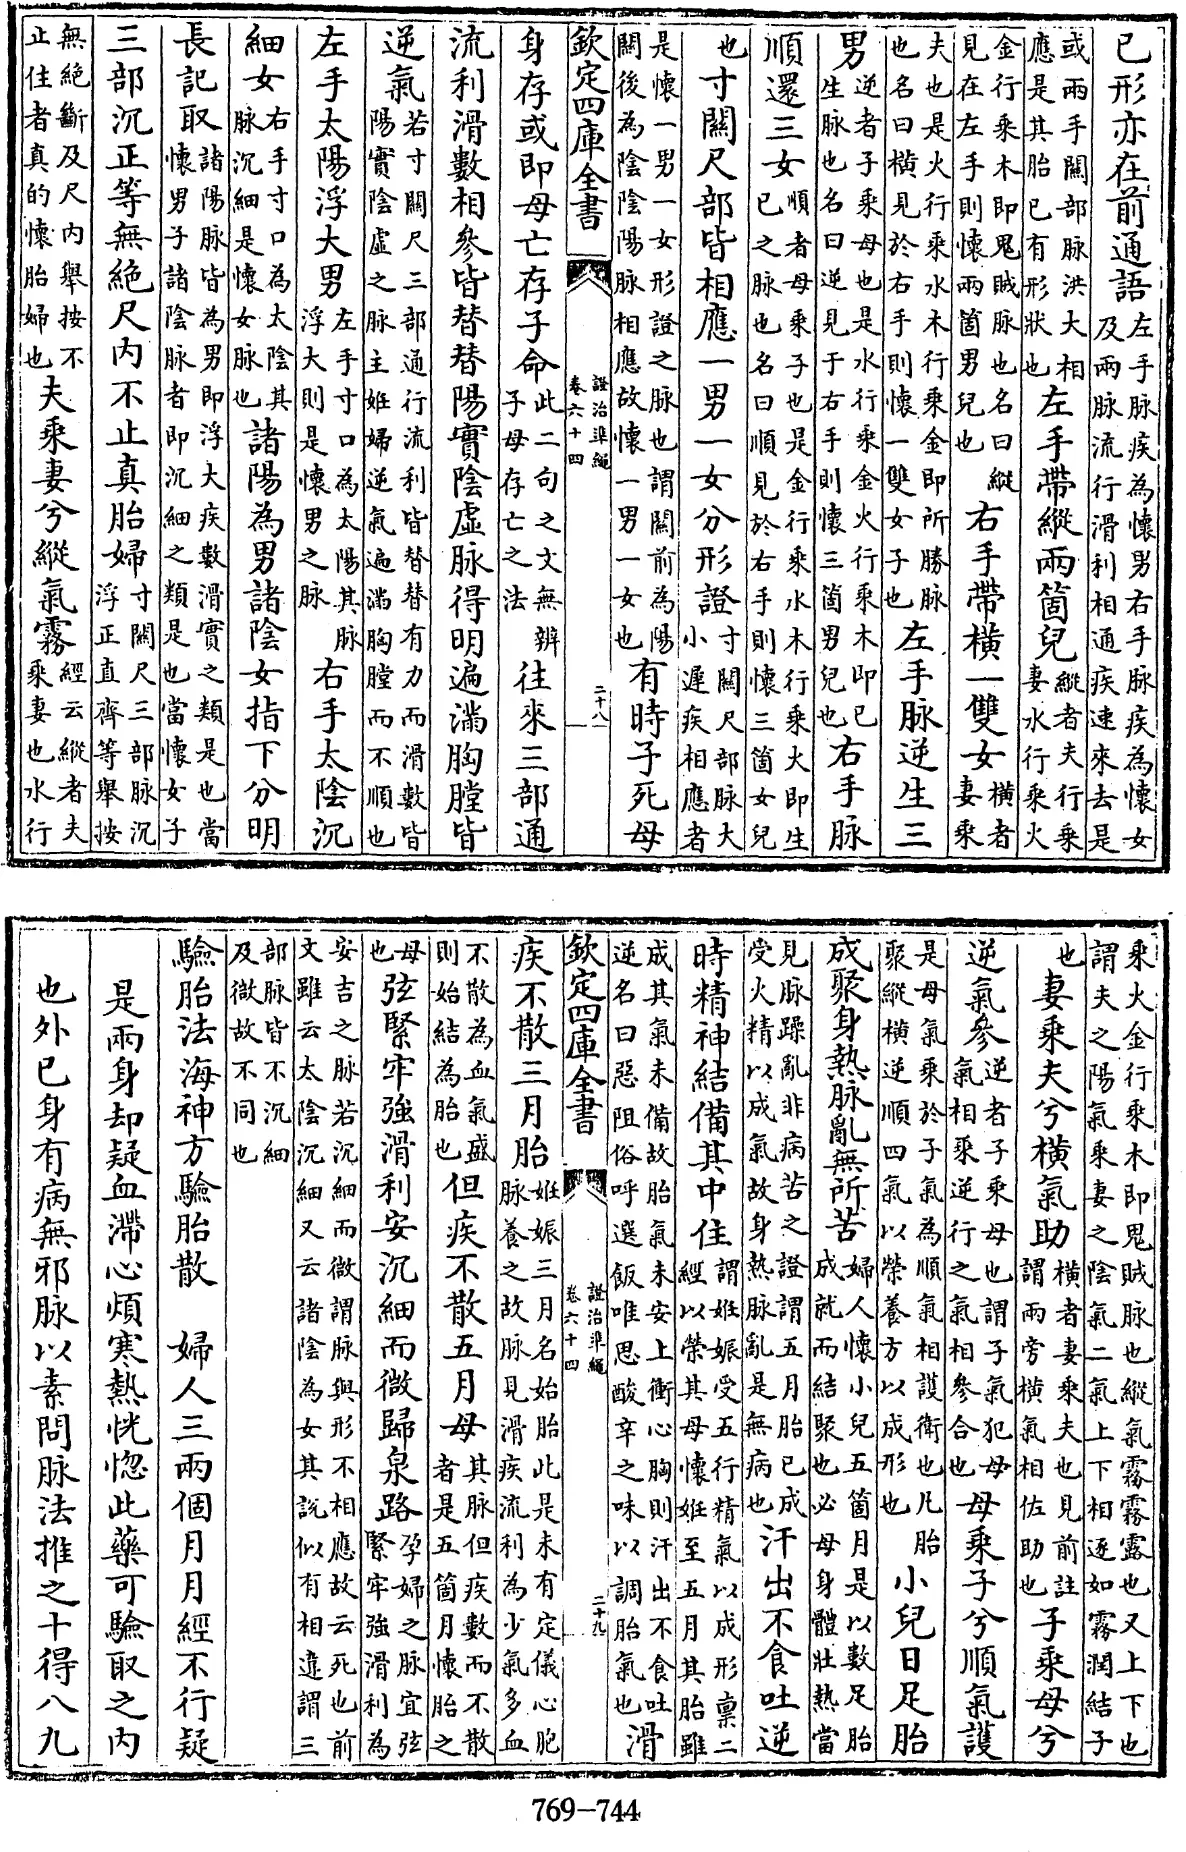 已形亦在前通語左手脉疾為懷男右手脉疾為懷女及兩脉流行滑利相通疾速來去是
或兩手關部脉洪大相應是其胎已有形狀也左手帶縱兩箇兒縱者夫行乘妻水行乘火
金行乘木即鬼賊脉也名曰縱見在左手則懷兩箇男兒也右手帶橫一雙女橫者妻乘
夫也是火行乘水木行乘金即所勝脉也名曰橫見於右手則懷一雙女子也左手脉逆生三
男逆者子乘母也是水行乘金火行乘木即已生脉也名曰逆見于右手則懷三箇男兒也右手脉
順還三女順者母乘子也是金行乘水木行乘火即生已之脉也名曰順見於右手則懷三箇女兒
也寸關尺部皆相應一男一女分形證寸關尺部脉大小遲疾相應者
是懷一男一女形證之脉也謂關前為陽關後為陰陰陽脉相應故懷一男一女也有時子死母
欽定四庫全書 證治準繩 卷六十四 二十八
身存或即母亡存子命此二句之文無辨子母存亡之法往來三部通
流利滑數相參皆替替陽實陰虛脉得明遍滿胸膛皆
逆氣若寸關尺三部通行流利皆替替有力而滑數皆陽實陰虛之脉主姙婦逆氣遍滿胸膛而不順也
左手太陽浮大男左手寸口為太陽其脉浮大則是懷男之脉右手太陰沉
細女右手寸口為太陰其脉沉細是懷女脉也諸陽為男諸陰女指下分明
長記取諸陽脉皆為男即浮大疾數滑實之類是也當懷男子諸陰脉者即沉細之類是也當懷女子
三部沉正等無絕尺內不止真胎婦寸關尺三部脉沉浮正直齊等舉按
無絕斷及尺內舉按不止住者真的懷胎婦也夫乘妻兮縱氣霧經云縱者夫乘妻也水行
乘火金行乘木即鬼賊脉也縱氣霧霧露也又上下也謂夫之陽氣乘妻之陰氣二氣上下相逐如霧潤結子
也妻乘夫兮橫氣助橫者妻乘夫也見前註謂兩旁橫氣相佐助也子乘母兮
逆氣參逆者子乘母也謂子氣犯母氣相乘逆行之氣相參合也母乘子兮順氣護
是母氣乘於子氣為順氣相護衛也凡胎聚縱橫逆順四氣以榮養方以成形也小兒日足胎
成聚身熱脉亂無所苦婦人懷小兒五箇月是以數足胎成就而結聚也必母身體壯熱當
見脉躁亂非病苦之證謂五月胎已成受火精以成氣故身熱脉亂是無病也汗出不食吐逆
時精神結備其中住謂姙娠受五行精氣以成形禀二經以榮其母懷姙至五月其胎雖
成其氣未備故胎氣未安上衝心胸則汗出不食吐逆名曰惡阻俗呼選飯唯思酸辛之味以調胎氣也滑
欽定四庫全書 證治準繩 卷六十四 二十九
疾不散三月胎姙娠三月名始胎此是未有定儀心胞脉養之故脉見滑疾流利為少氣多血
不散為血氣盛則始結為胎也但疾不散五月母其脉但疾數而不散者是五箇月懷胎之
母也弦緊牢強滑利安沉細而微歸泉路孕婦之脉宜弦緊牢強滑利為
安吉之脉若沉細而微謂脉與形不相應故云死也前文雖云太陰沉細又云諸陰為女其說似有相違謂三
部脉皆不沉細及微故不同也
驗胎法海神方驗胎散 婦人三兩個月月經不行疑
是兩身却疑血滯心煩寒熱恍惚此藥可驗取之內
也外已身有病無邪脉以素問脉法推之十得八九
769-744